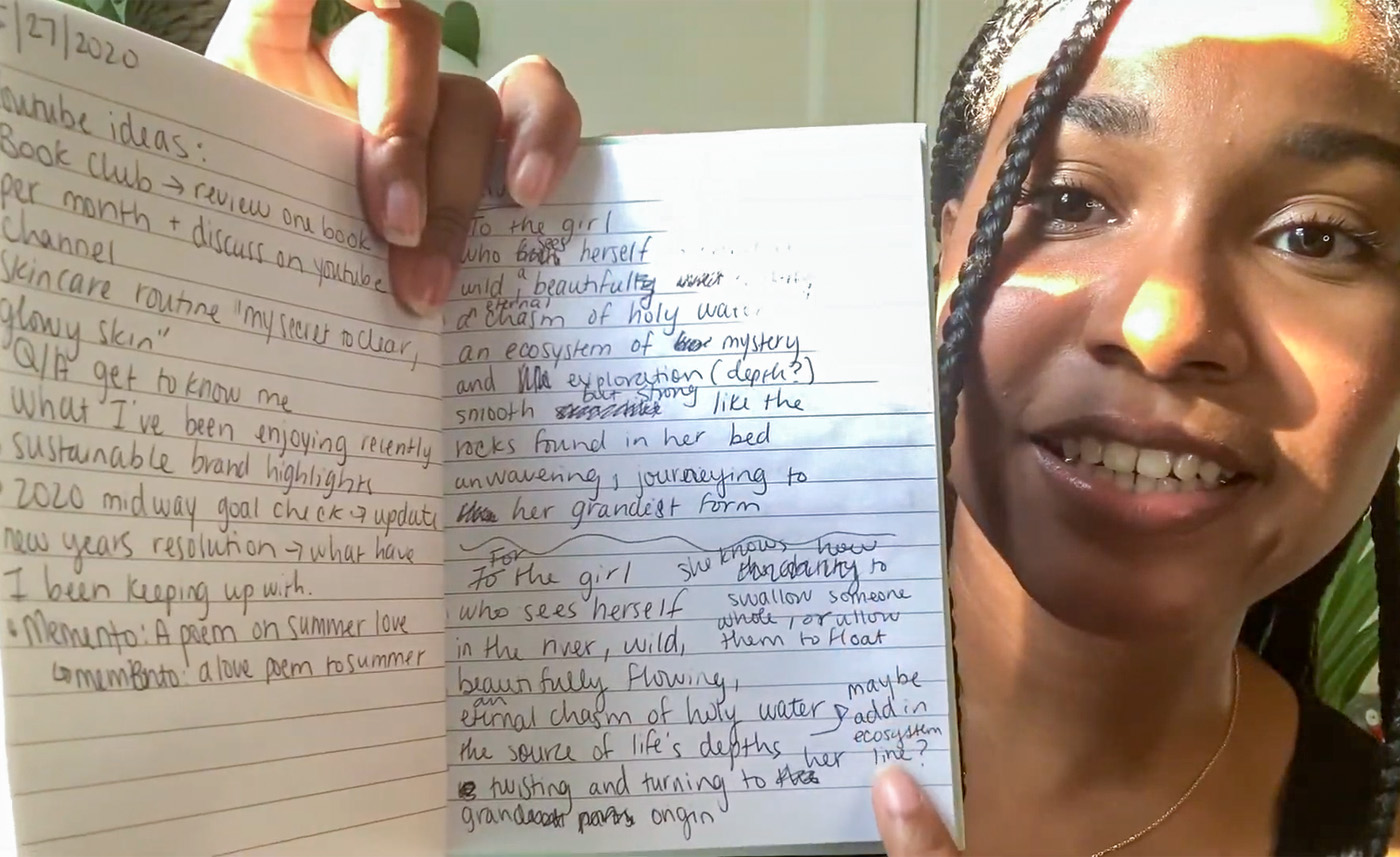 /27/2020
outube ideas:
Book Club → review one book
per month + discuss on youtube
channel
skincare routine "my secret to clear,
glowy skin"
Q/A get to know me
What I've been enjoying recently
sustainable brand highlights
2020 midway goal check → update
new years resolution → what have
I been keeping up with.
• Memento: A poem on summer love
↳ memento: a love poem to summer
To the girl
who sees herself
wild, a beautiful
a eternal chasm of holy water
an ecosystem of mystery
and exploration (depth?)
smooth but strong like the
rocks found in her bed
unwavering, journeying to
her grandest form
For
To the girl
who sees herself
in the river, wild,
beautifully flowing,
an
eternal chasm of holy water
the source of life's depths
twisting and turning to her
grand origin
she knows how
to
swallow someone
whole, or allow
them to float
maybe
add in
ecosystem
line?